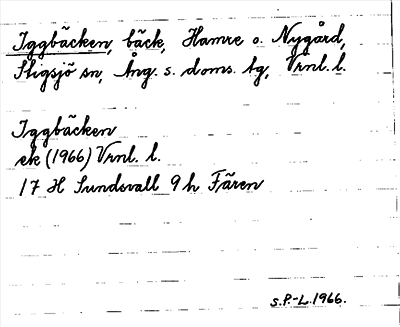 Iggbäcken, bäck, Hamre o. Nygård,
Stigsjö sn, Ång. s. doms. tg, Vrnl. l.
Iggbäcken
ek (1966) Vrnl. l.
17 H Sundsvall 9 h Fären
s.P.-L.1966.